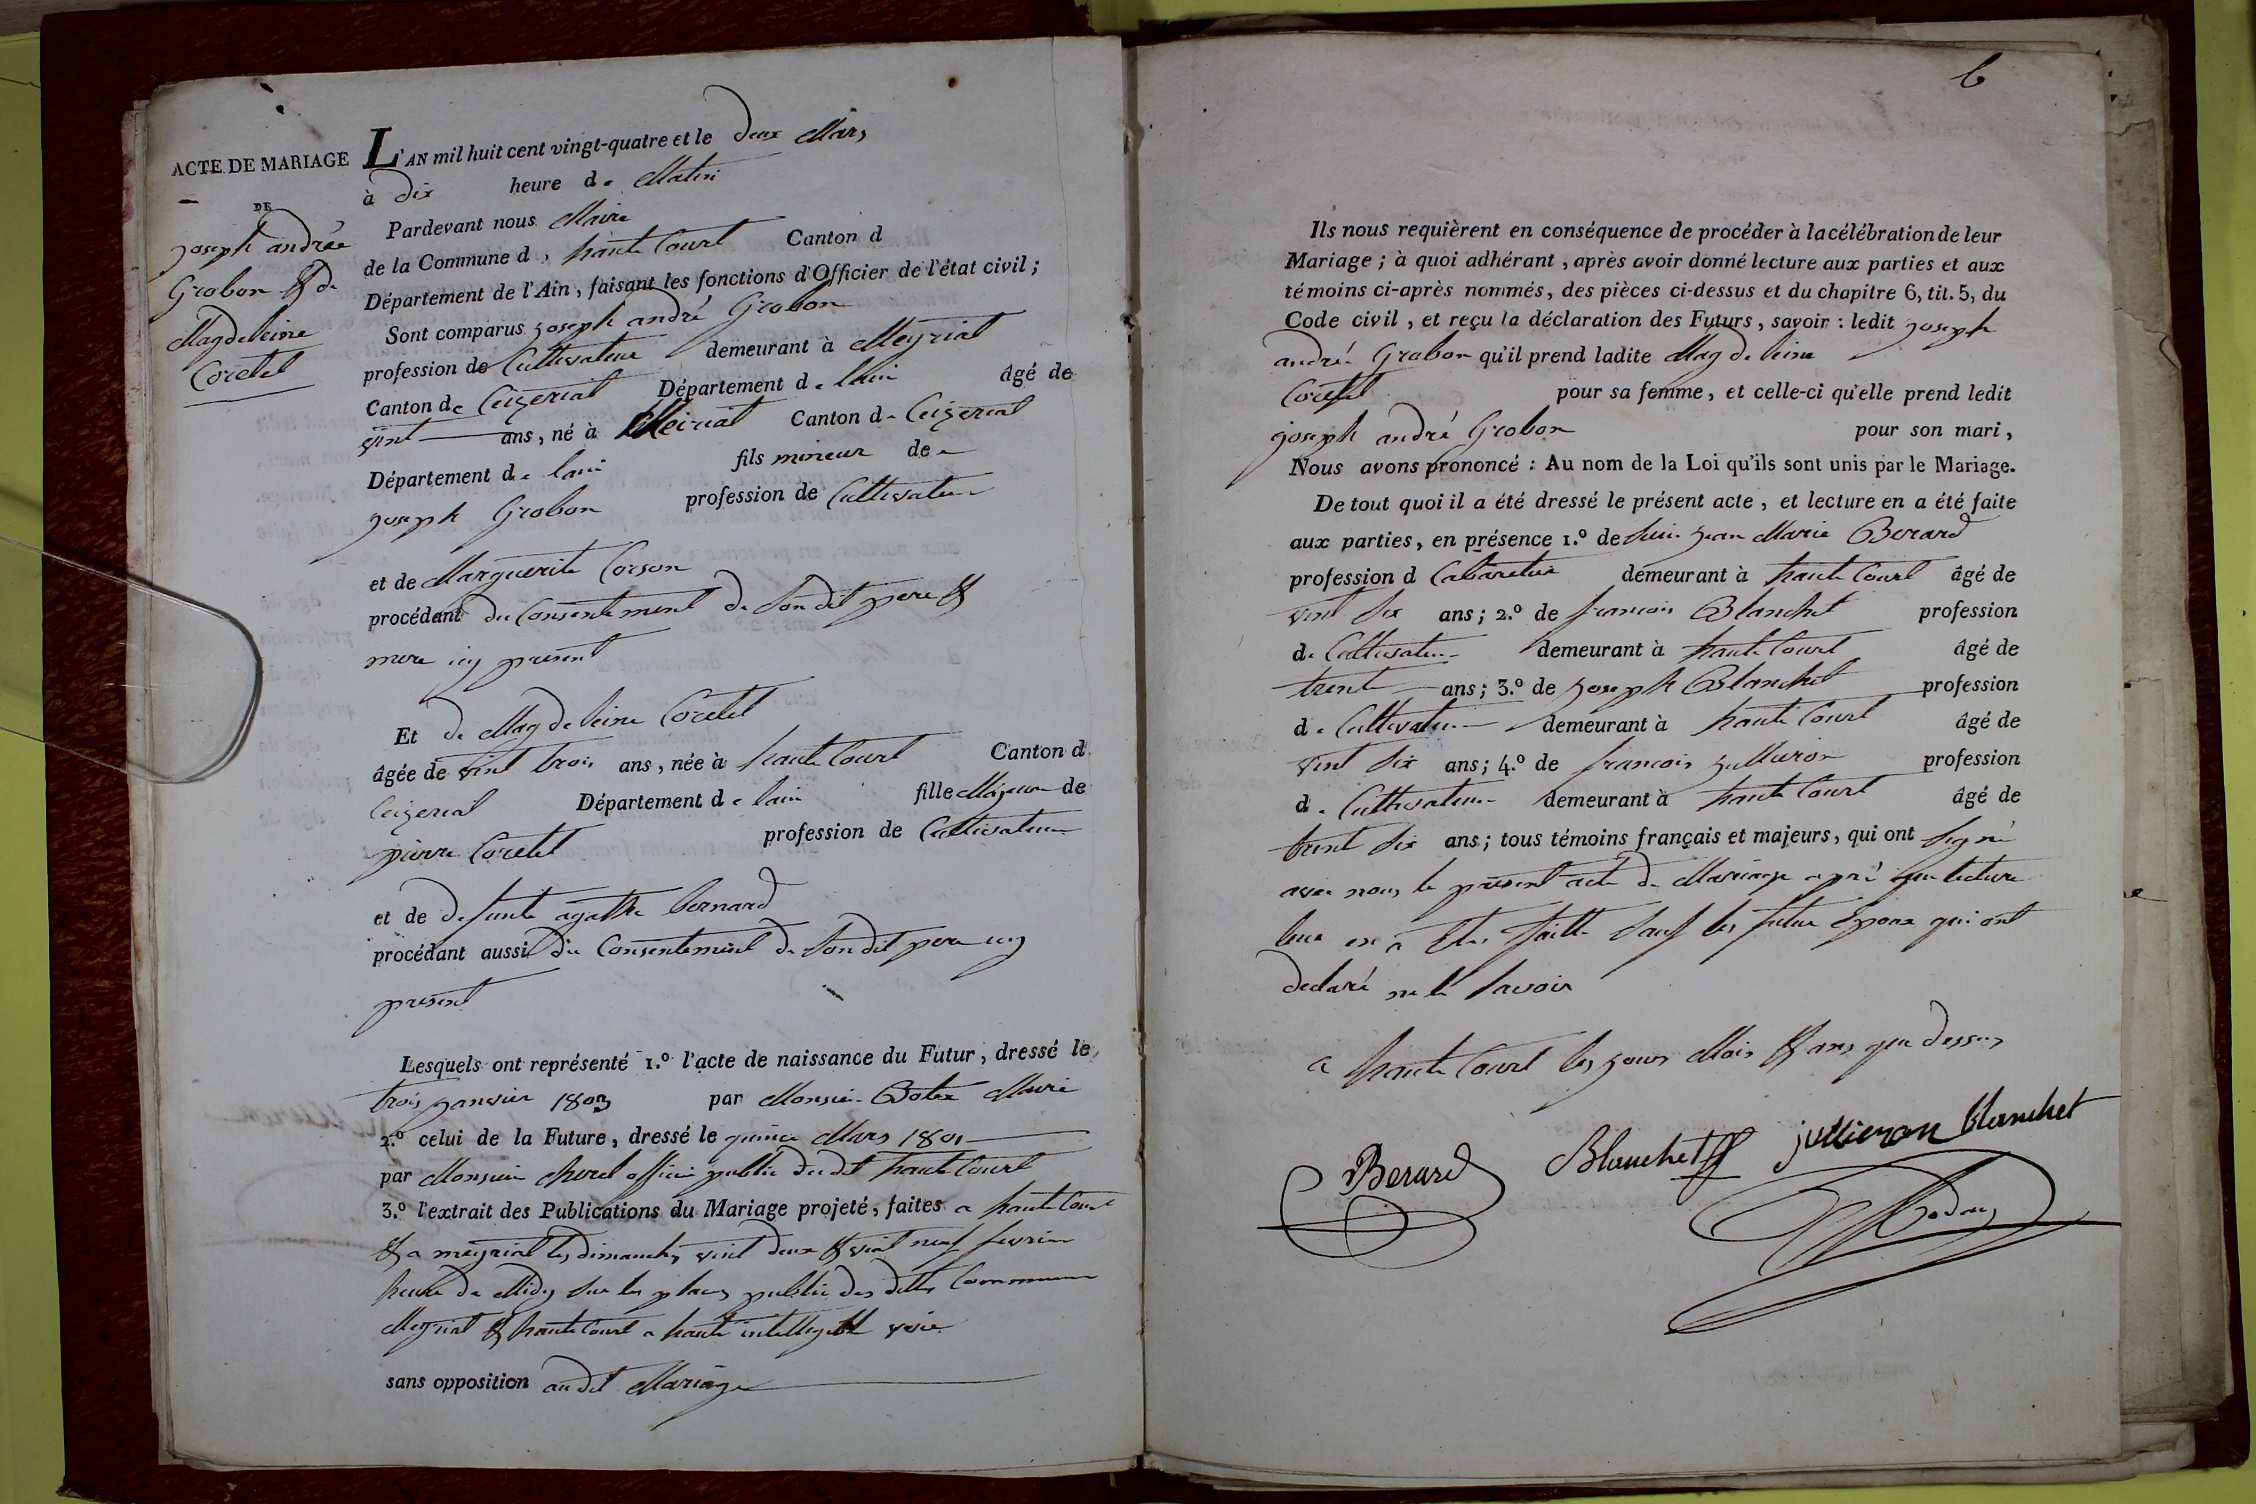 ACTE DE MARIAGE
DE
joseph andrée
Grobon & de
Magdeleine
Coretet
L'AN mil huit cent vingt-quatre et le deux Mars
à dix heure de Matin
Pardevant nous Maire
de la Commune d haute Court Canton d
Département de l'Ain, faisant les fonctions d'Officier de l'état civil;
Sont comparus joseph andré Grobon
profession de Cultivateur demeurant à Meyriat
Canton de Ceizeriat Département de lain âgé de
vint ans, né à Meiriat Canton de Ceizeriat
Département de lain fils mineur de
joseph Grobon profession de Cultivateur
et de Marguerite Corson
procédant du Consentement de Son dit pere &
mere icy present
Et de Magdeleine Coretet
âgée de vint trois ans, née à haute Court Canton d
Ceizeriat Département de lain fille Majeure de
pierre Coretet profession de Cultivateur
et de defunte agathe bernard
procédant aussi du Consentement de Son dit pere icy
present
Lesquels ont représenté 1.º l'acte de naissance du Futur, dressé le
trois janvier 1803 par Monsieur Botex Maire
2.º celui de la Future, dressé le quince Mars 1801
par Monsieur officier public du dit haute Court
3.º l'extrait des Publications du Mariage projeté, faites a haute Court
& a meyriat les dimanches vint deux & vint neuf fevrier
heure de Midy Sur les places public des dittes Commune
Meyriat & haute Court a haute intelligible voie
sans opposition au dit Mariage
6
Ils nous requièrent en conséquence de procéder à la célébration de leur
Mariage; à quoi adhérant, après avoir donné lecture aux parties et aux
témoins ci-après nommés, des pièces ci-dessus et du chapitre 6, tit. 5, du
Code civil, et reçu la déclaration des Futurs, savoir: ledit joseph
andré Grobon qu'il prend ladite Magdeleine
Coretet pour sa femme, et celle-ci qu'elle prend ledit
joseph andré Grobon pour son mari,
Nous avons prononcé: Au nom de la Loi qu'ils sont unis par le Mariage.
De tout quoi il a été dressé le présent acte, et lecture en a été faite
aux parties, en présence 1.º de jean Marie Berard
profession d Cabaretier demeurant à haute Court âgé de
vint Six ans; 2.º de francois Blanchet profession
de Cultivateur demeurant à haute Court âgé de
trente ans; 3.º de joseph Blanchet profession
de Cultivateur demeurant à haute Court âgé de
vint Six ans; 4.º de francois jullieron profession
de Cultivateur demeurant à haute Court âgé de
trent Six ans; tous témoins français et majeurs, qui ont Signé
avec nous le present acte de Mariage apré que lecture
leur en a Eté faitte Sauf les futur Epoux qui ont
declaré ne le Savoir
a haute Court les jours Mois & ans que dessus
Berard Blanchet jullieron blanchet